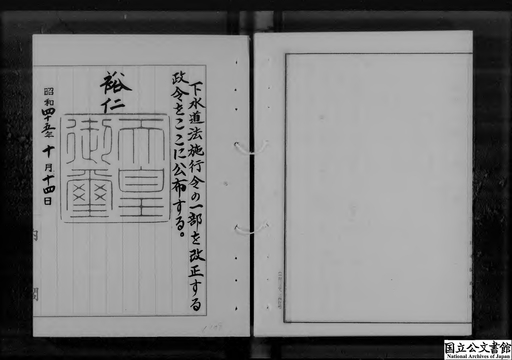 下水道法施行令の一部を改正する
政令をここに公布する。
裕仁
天皇
御璽
昭和四十五年十月十四日
内閣
国立公文書館
National Archives of Japan